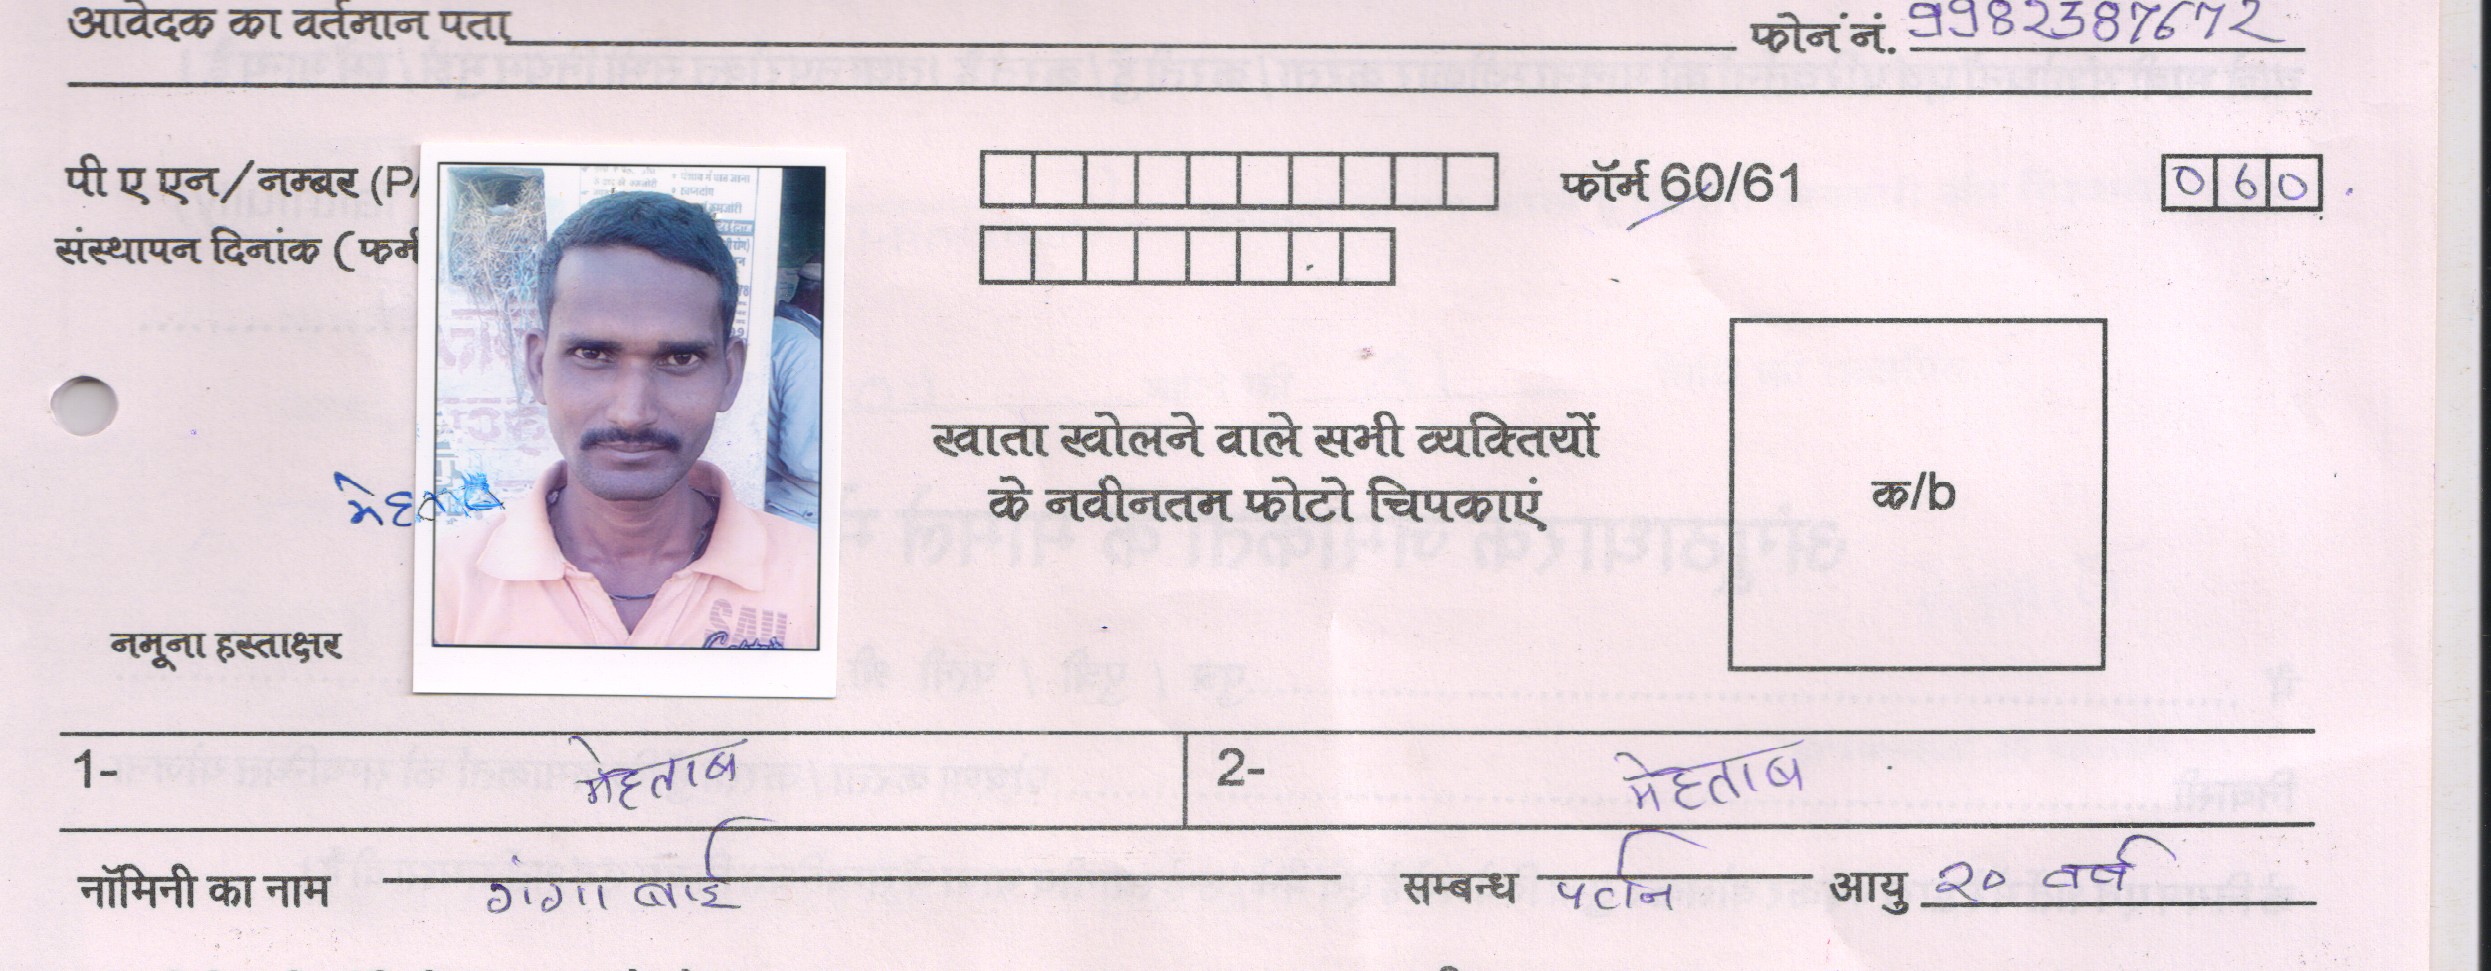 आवेदक का वर्तमान पता फोन नं. 9982387672
पी ए एन/नम्बर (PA फॉर्म 60/61 060
संस्थापन दिनांक (फर्म
खाता खोलने वाले सभी व्यक्तियों
के नवीनतम फोटो चिपकाएं
क/b
मेहताब
नमूना हस्ताक्षर
1- मेहताब 2- मेहताब
नॉमिनी का नाम गंगा बाई सम्बन्ध पत्नि आयु २० वर्ष